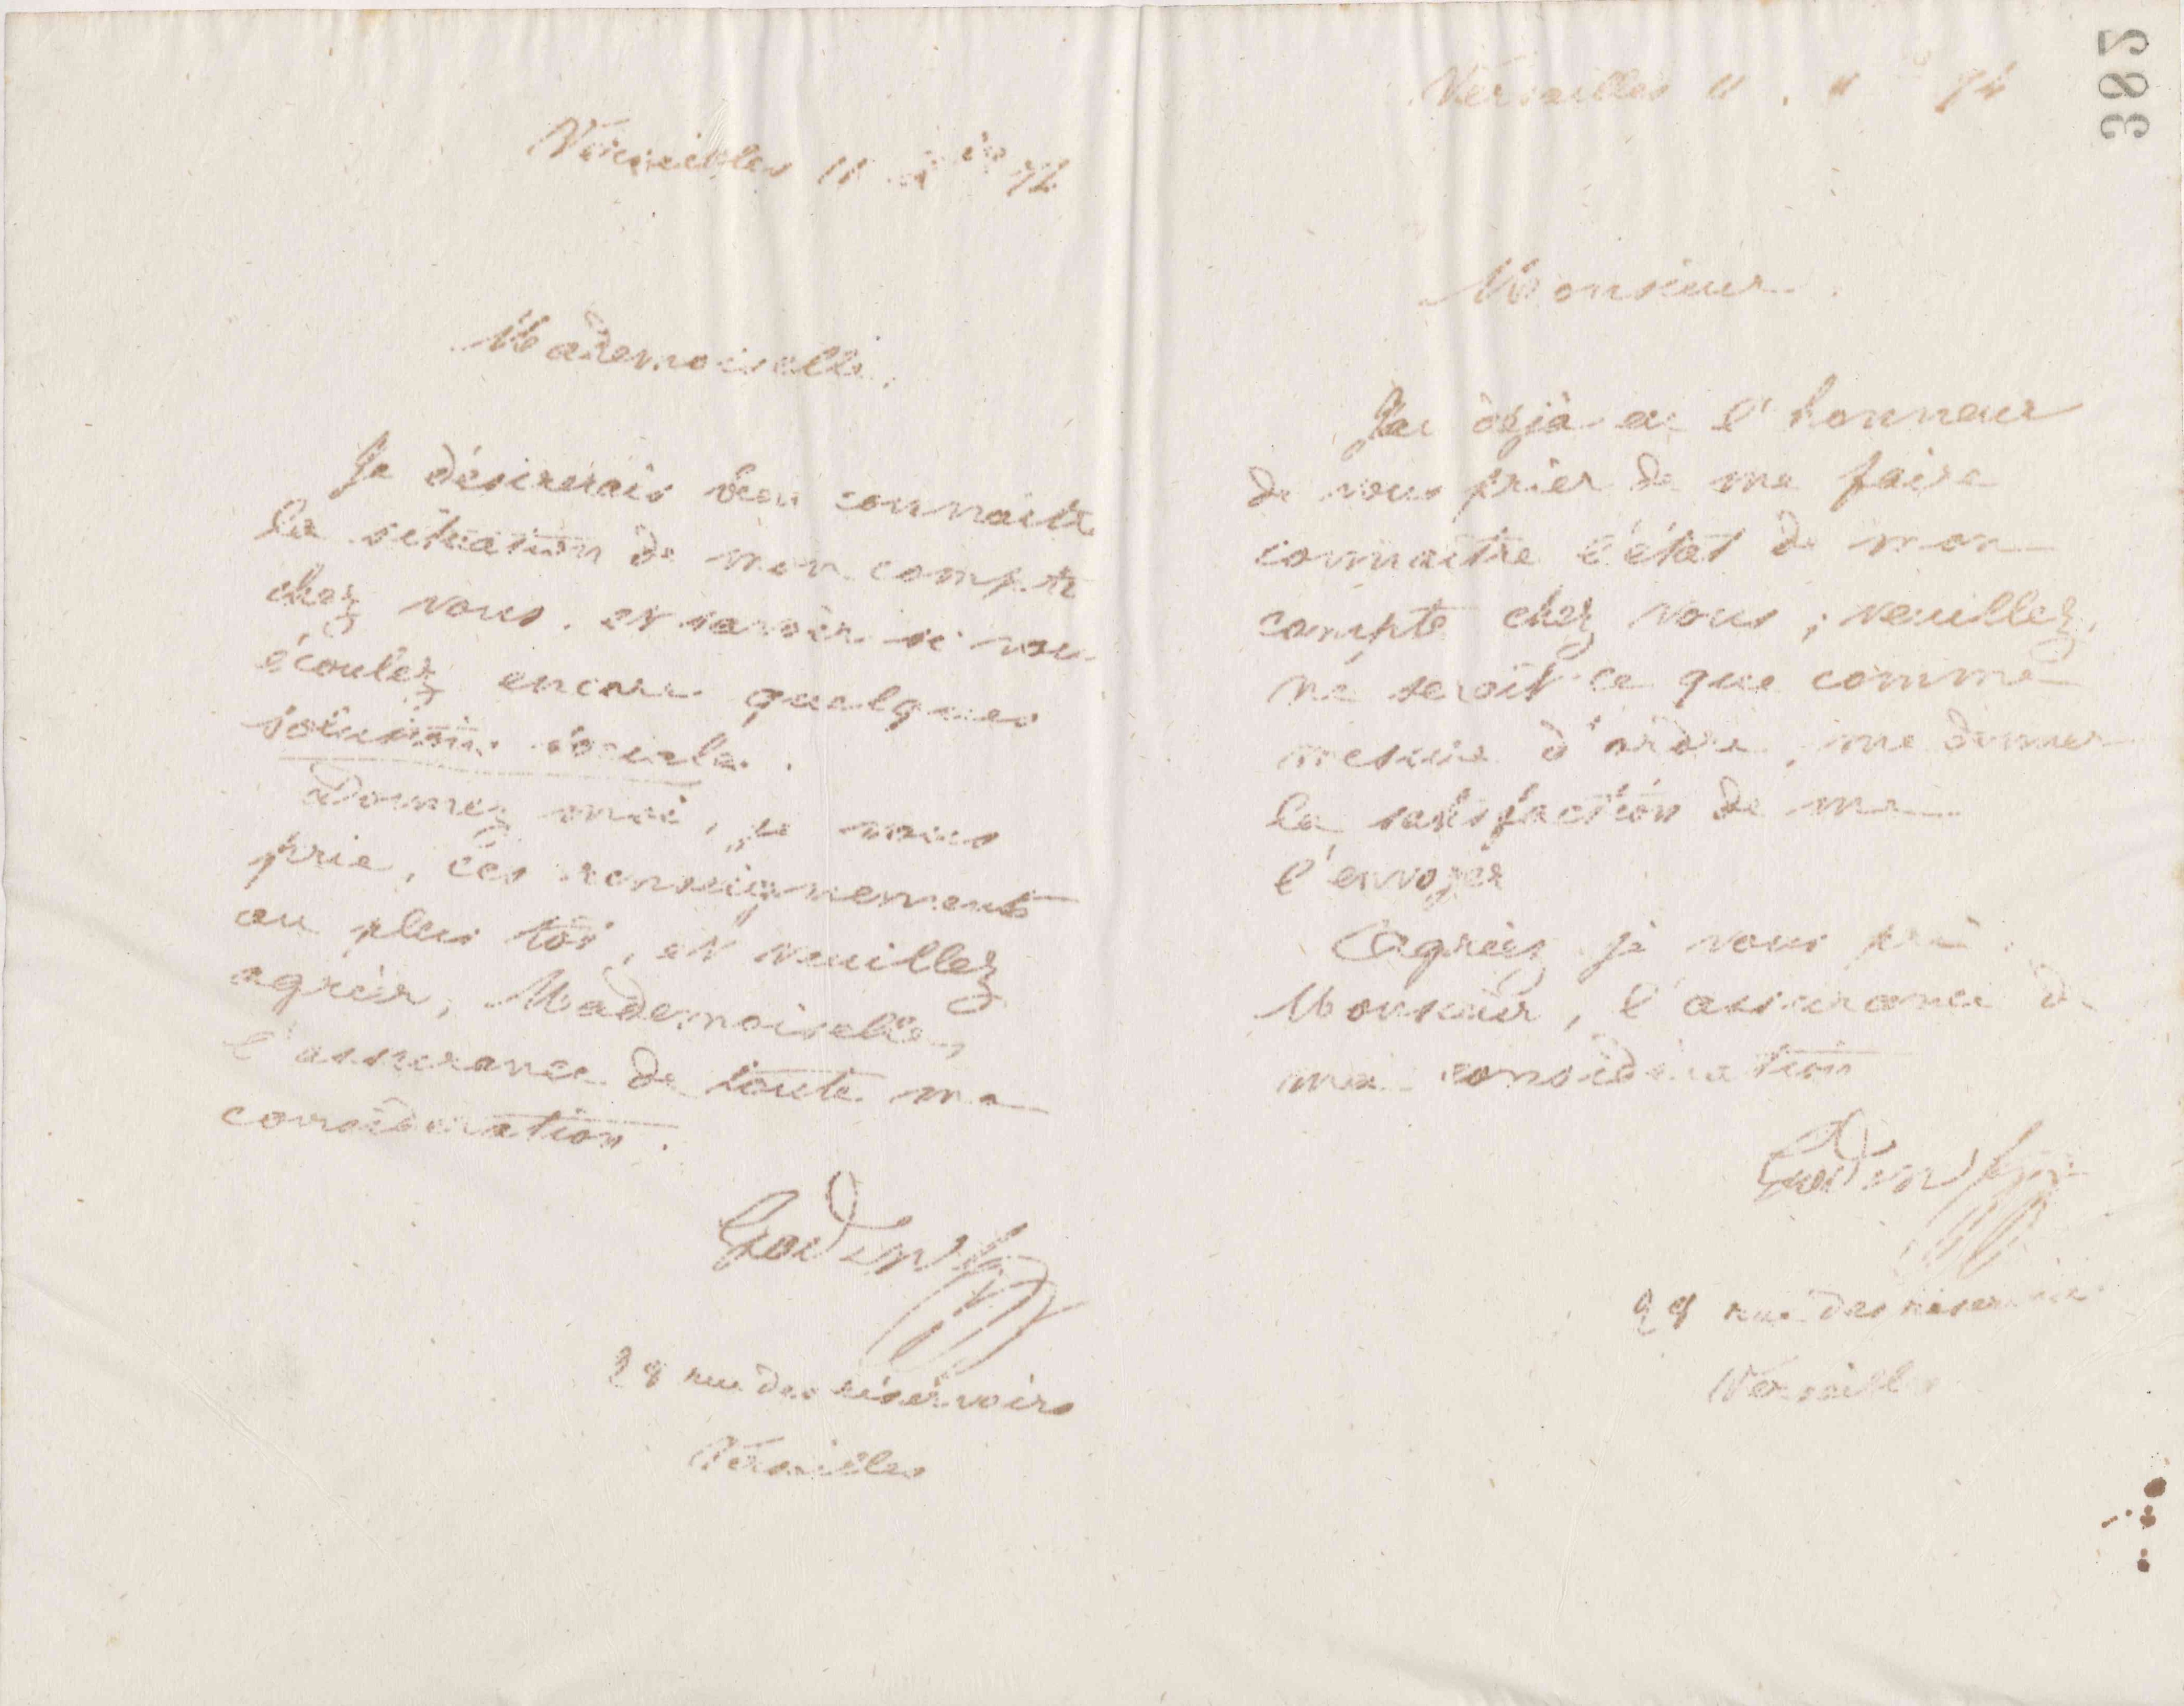 Versailles 11
Mademoiselle,
Je désirerais bien connaitre
la situation de mon compte
chez vous. et savoir si vous
écoulez encore quelques
solutions sociales.
Donnez moi, je vous
prie, ces renseignements
au plus tôt, et veuillez
agréer, Mademoiselle,
l'assurance de toute ma
considération.
Godin
28 rue des réservoirs
Versailles
385
Versailles 11
Monsieur.
J'ai déjà eu l'honneur
de vous prier de me faire
connaitre l'état de mon
compte chez vous ; veuillez,
ne serait ce que comme
mesure d'ordre, me donner
la satisfaction de me
l'envoyer
Agréez je vous prie,
Monsieur, l'assurance de
ma considération
Godin
28 rue des réservoirs
Versailles